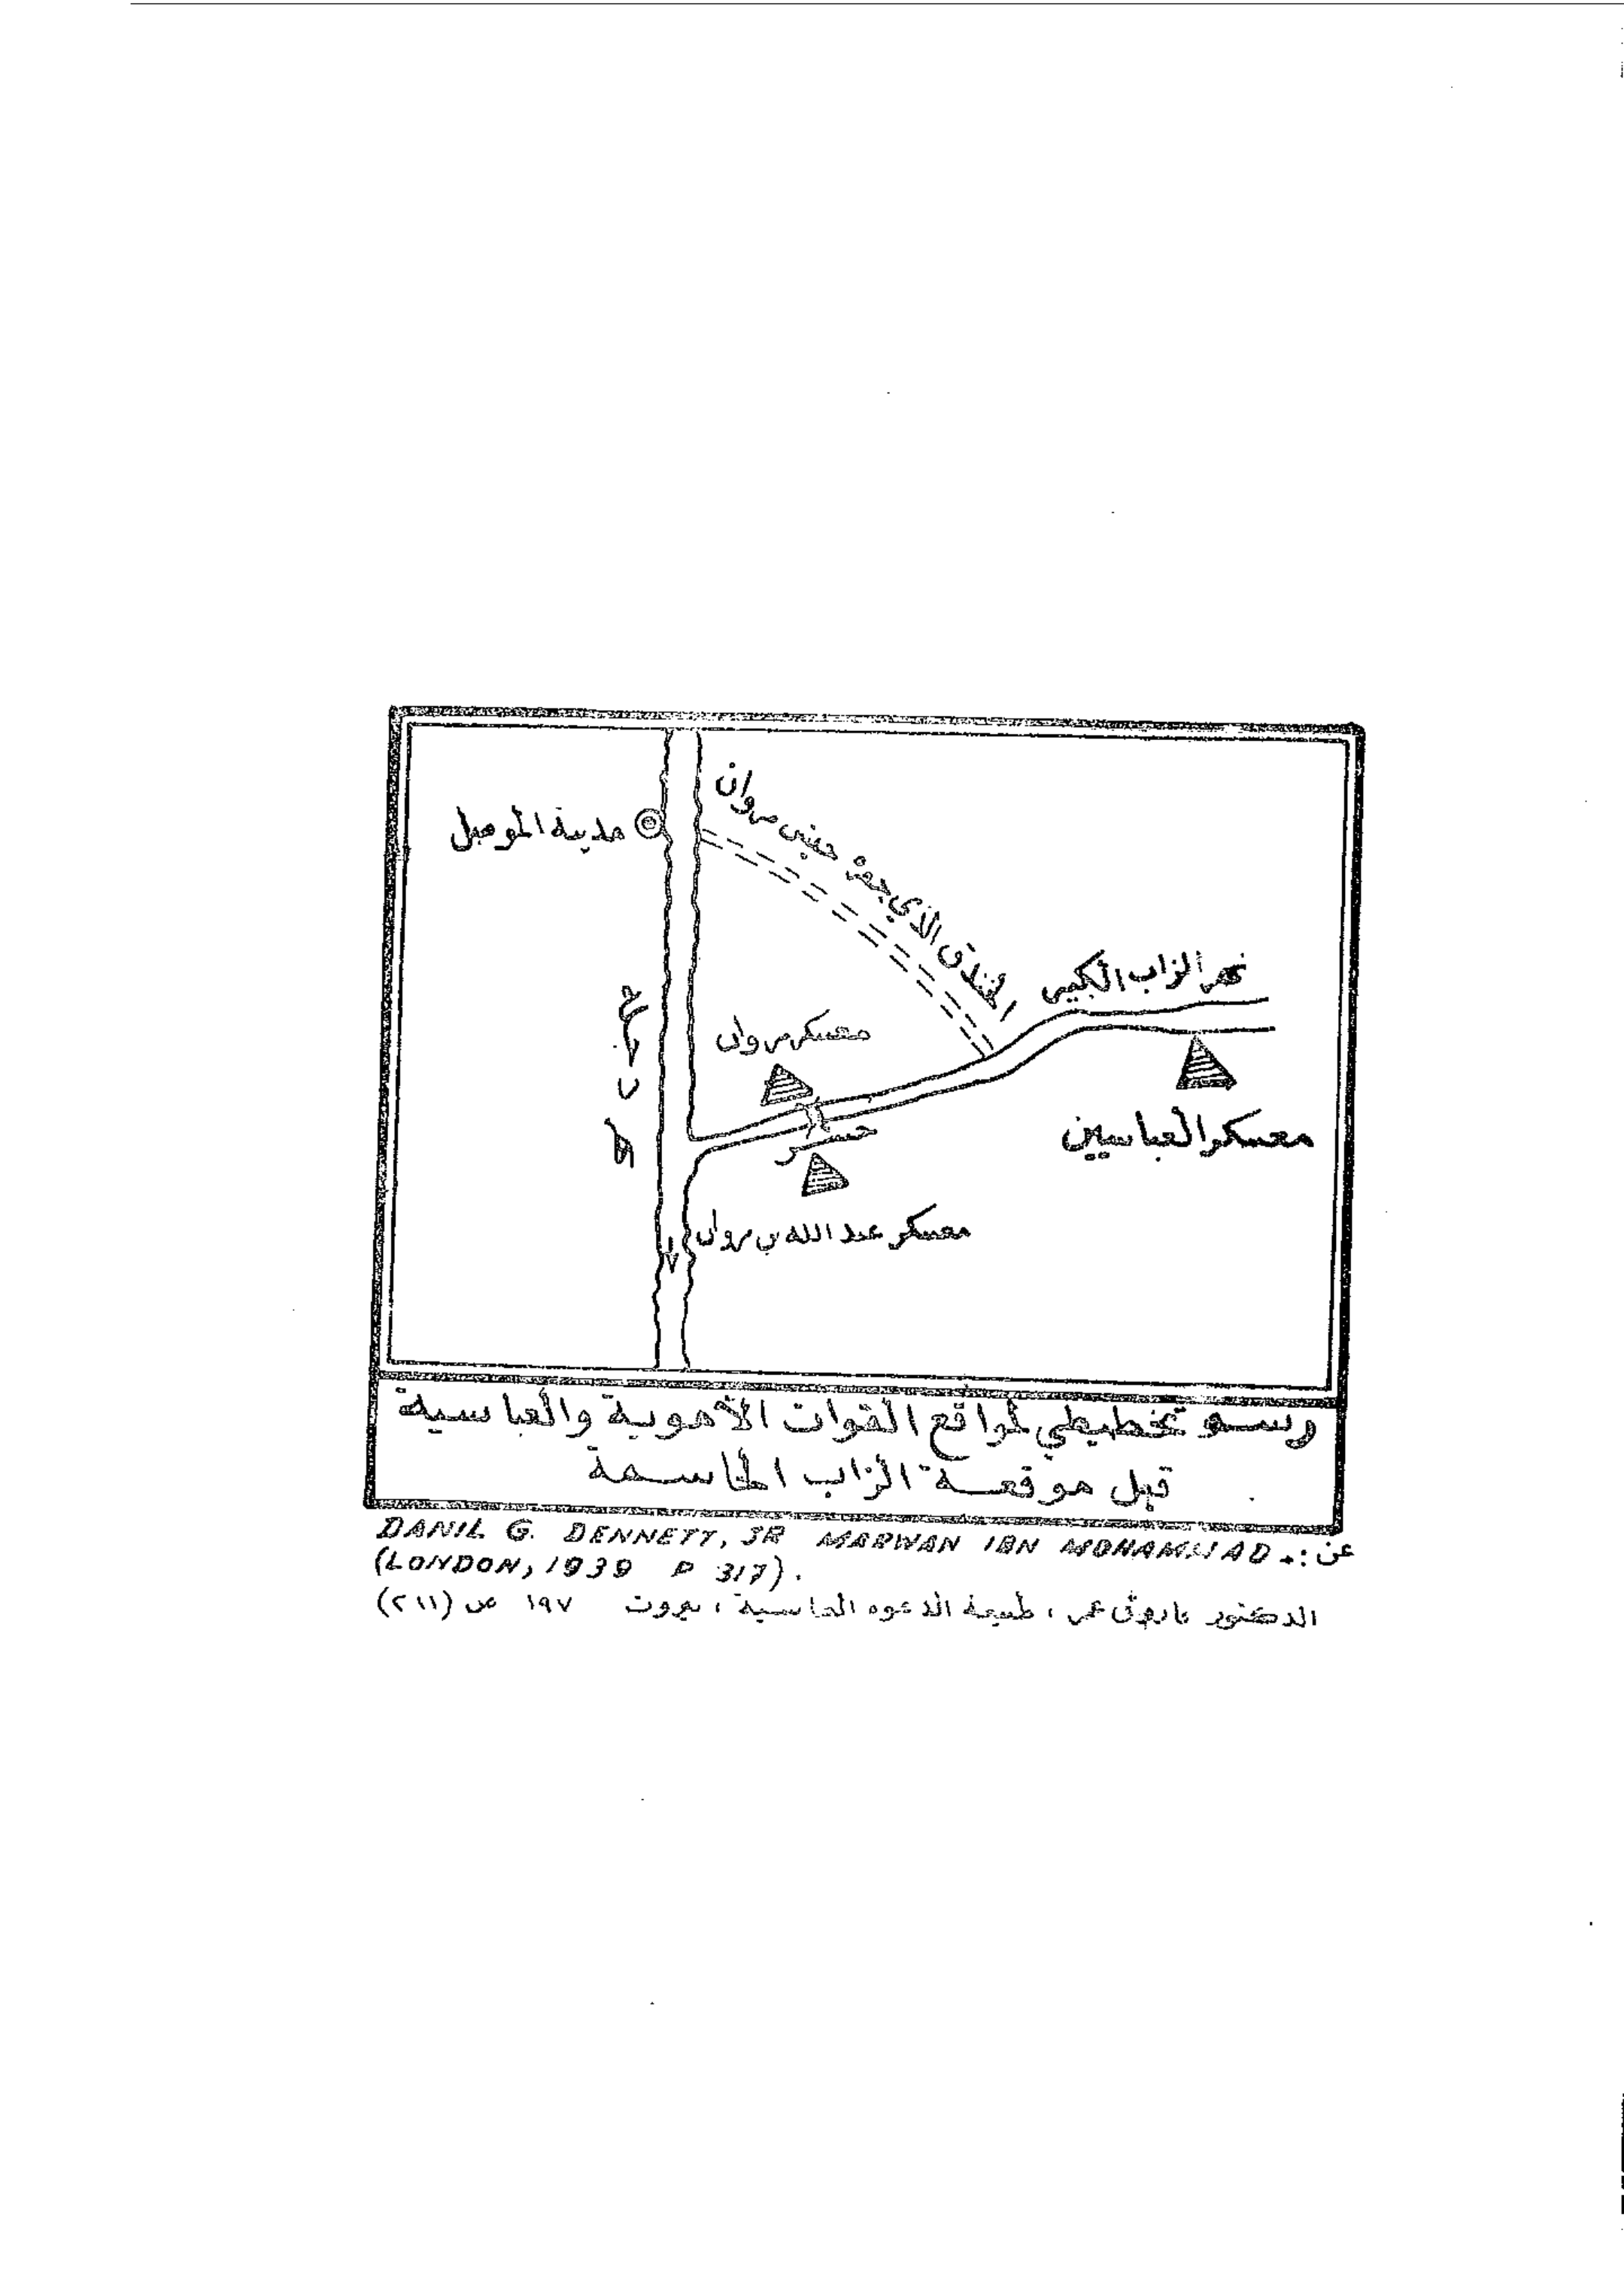 مدينة الموصل
الخندق الذي حفره جيش مروان
نهر الزاب الكبير
معسكر مروان
جسر
معسكر العباسيين
معسكر عبد الله بن مروان
رسم تخطيطي لمواقع القوات الأموية والعباسية
قبل موقعة الزاب الحاسمة
عن: DANIL G. DENNETT, JR MARWAN IBN MOHAMMAD.
(LONDON, 1939 P 317).
الدكتور فاروق عمر، طبيعة الدعوه العباسية، بيروت ١٩٧ ص (٢١١)